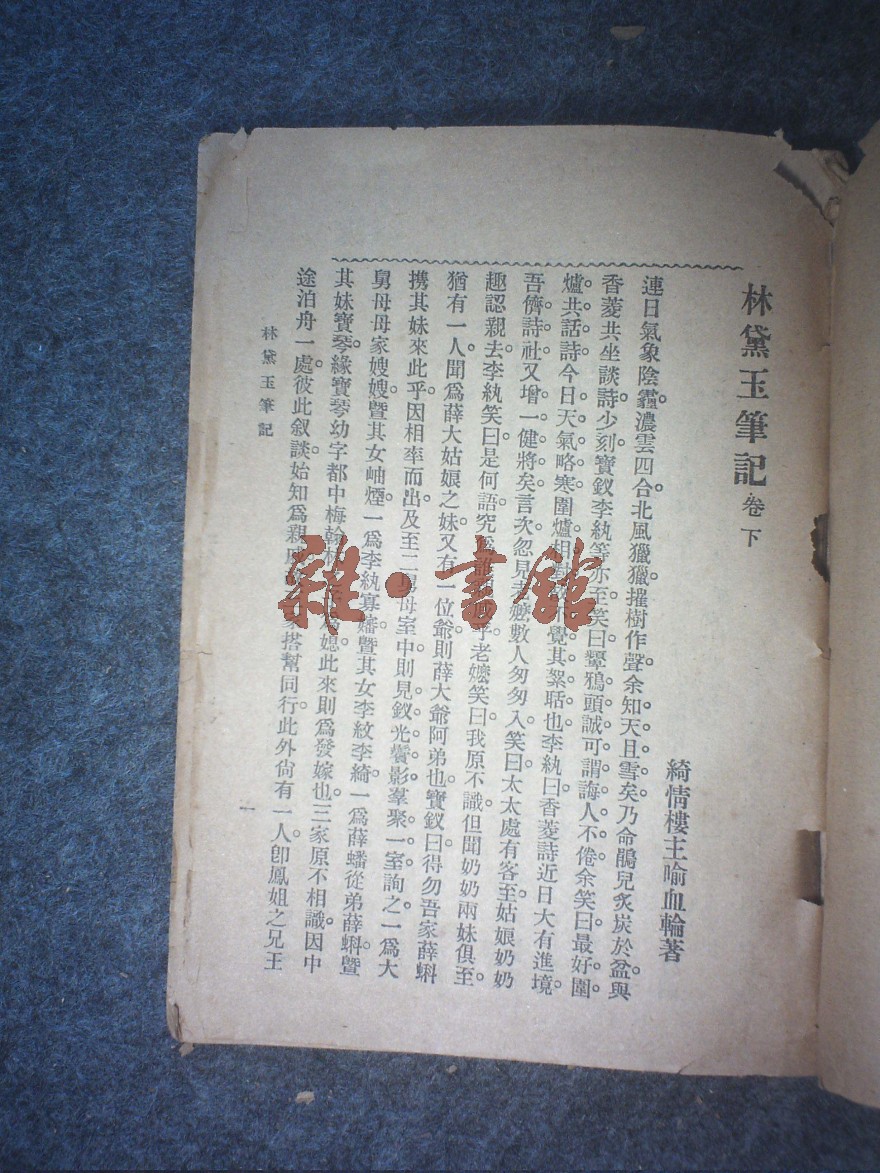 林黛玉筆記 卷下
綺情樓主喻血輪著
連日氣象陰霾。濃雲四合。北風獵獵。摧樹作聲。余知天且雪矣。乃命鵑兒炙炭於盆。與
香菱共坐談詩。少刻寶釵李紈等亦至。笑曰。顰鴉頭誠可謂誨人不倦。余笑曰。最好圍
爐共話詩。今日天氣略寒。圍爐相對。不覺其絮聒也。李紈曰。香菱詩近日大有進境。
吾儕詩社又增一健將矣。言次。忽見老嬤數人匆匆入。笑曰。太太處有客至。姑娘奶奶
趣認親去。李紈笑曰。是何語。究為誰乎。老嬤笑曰。我原不識。但聞奶奶兩妹俱至。
猶有一人。聞爲薛大姑娘之妹。又有一位爺。則薛大爺阿弟也。寶釵曰。得勿吾家薛蝌
攜其妹來此乎。因相率而出。及至二舅母室中。則見釵光鬢影。羣聚一室。詢之。一爲大
舅母母家嫂嫂。曁其女岫煙。一爲李紈寡嬸曁其女李紋李綺。一爲薛蟠從弟薛蝌曁
其妹寶琴。緣寶琴幼字都中梅翰林媳。此來則爲發嫁也。三家原不相識。因中
途泊舟一處。彼此叙談。始知爲親搭幫同行。此外尙有一人。卽鳳姐之兄王
林黛玉筆記
一
雜·書館